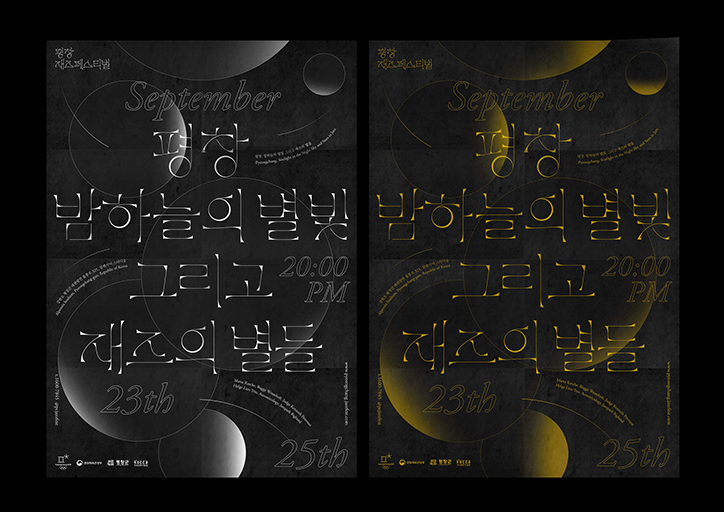 평창
재즈페스티벌
September
평창
평창, 밤하늘의 별빛 그리고 재즈의 별들
Pyeongchang, Starlight in the Night Sky and Stars in Jazz
밤하늘의 별빛
그리고
20:00
PM
재즈의 별들
23th
25th
평창군
평창
재즈페스티벌
September
평창
평창, 밤하늘의 별빛 그리고 재즈의 별들
Pyeongchang, Starlight in the Night Sky and Stars in Jazz
밤하늘의 별빛
그리고
20:00
PM
재즈의 별들
23th
25th
평창군